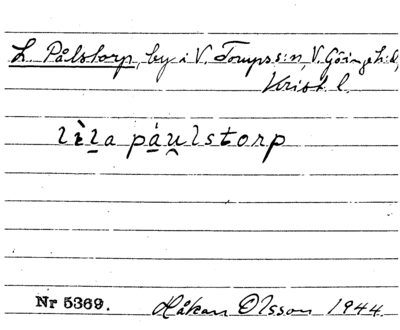 L. Pålstorp, by i V. Torups s:n, V. Göinge h:d,
Krist. l.
lìla páulstorp
Nr 5369. Håkan Olsson 1944.